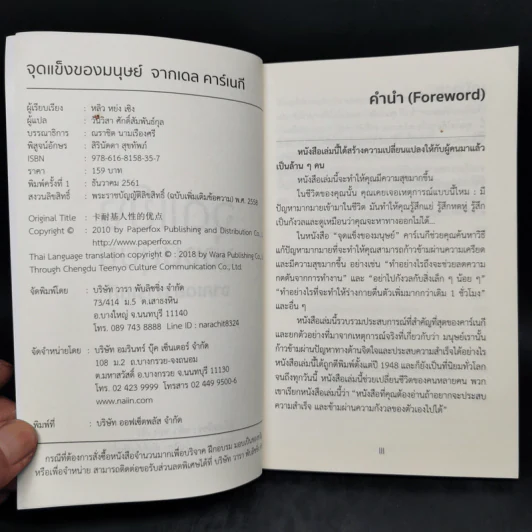 จุดแข็งของมนุษย์ จากเดล คาร์เนกี
ผู้เรียบเรียง : หลิว หย่ง เชิง
ผู้แปล : วันวิสา ศักดิ์สัมพันธ์กุล
บรรณาธิการ : ณราชิต นามเรืองศรี
พิสูจน์อักษร : สิรินัดดา สุขทัพภ์
ISBN : 978-616-8158-35-7
ราคา : 159 บาท
พิมพ์ครั้งที่ 1 : ธันวาคม 2561
สงวนลิขสิทธิ์ : พระราชบัญญัติลิขสิทธิ์ (ฉบับเพิ่มเติมข้อความ) พ.ศ. 2558
Original Title : 卡耐基人性的优点
Copyright © : 2010 by Paperfox Publishing and Distribution Co.,
http://www.paperfox.cn
Thai Language translation copyright © : 2018 by Wara Publishing Co., Ltd.
Through Chengdu Teenyo Culture Communication Co., Ltd.
จัดพิมพ์โดย : บริษัท วารา พับลิชชิ่ง จำกัด
73/414 ม.5 ต.เสาธงหิน
อ.บางใหญ่ จ.นนทบุรี 11140
โทร. 089 743 8888 Line ID : narachit8324
จัดจำหน่ายโดย : บริษัท อมรินทร์ บุ๊ค เซ็นเตอร์ จำกัด
108 ม.2 ถ.บางกรวย-จงถนอม
ต.มหาสวัสดิ์ อ.บางกรวย จ.นนทบุรี 11130
โทร. 02 423 9999 โทรสาร 02 449 9500-6
www.naiin.com
พิมพ์ที่ : บริษัท ออฟเซ็ตพลัส จำกัด
กรณีที่ต้องการสั่งซื้อหนังสือจำนวนมากเพื่อบริจาค ฝึกอบรม มอบเป็นของ
หรือเพื่อจำหน่าย สามารถติดต่อขอรับส่วนลดพิเศษได้ที่ บริษัท วารา พับลิชชิ่ง
คำนำ (Foreword)
หนังสือเล่มนี้ได้สร้างความเปลี่ยนแปลงให้กับผู้คนมาแล้ว
เป็นล้าน ๆ คน
หนังสือเล่มนี้จะทำให้คุณมีความสุขมากขึ้น
ในชีวิตของคุณนั้น คุณเคยเจอเหตุการณ์แบบนี้ไหม : มี
ปัญหามากมายเข้ามาในชีวิต มันทำให้คุณรู้สึกแย่ รู้สึกหดหู่ รู้สึก
เป็นกังวลและดูเหมือนว่าคุณจะหาทางออกไม่ได้...
ในหนังสือ “จุดแข็งของมนุษย์” คาร์เนกีช่วยคุณค้นหาวิธี
แก้ปัญหามากมายที่จะทำให้คุณสามารถก้าวข้ามผ่านความเครียด
และมีความสุขมากขึ้น อย่างเช่น “ทำอย่างไรถึงจะช่วยลดความ
กดดันจากการทำงาน” และ “อย่าไปกังวลกับสิ่งเล็ก ๆ น้อย ๆ”
“ทำอย่างไรที่จะทำให้ร่างกายตื่นตัวเพิ่มมากกว่าเดิม 1 ชั่วโมง”
และอื่น ๆ
หนังสือเล่มนี้รวบรวมประสบการณ์ที่สำคัญที่สุดของคาร์เนกี
และยกตัวอย่างที่มาจากเหตุการณ์จริงที่เกี่ยวกับว่า มนุษย์เรานั้น
ก้าวข้ามผ่านปัญหาทางด้านจิตใจและประสบความสำเร็จได้อย่างไร
หนังสือเล่มนี้ได้ถูกตีพิมพ์ตั้งแต่ปี 1948 และก็ยังเป็นที่นิยมทั่วโลก
จนถึงทุกวันนี้ หนังสือเล่มนี้ช่วยเปลี่ยนชีวิตของคนหลายคน พวก
เขาเรียกหนังสือเล่มนี้ว่า “หนังสือที่คุณต้องอ่านถ้าอยากจะประสบ
ความสำเร็จ และข้ามผ่านความกังวลของตัวเองไปได้”
III